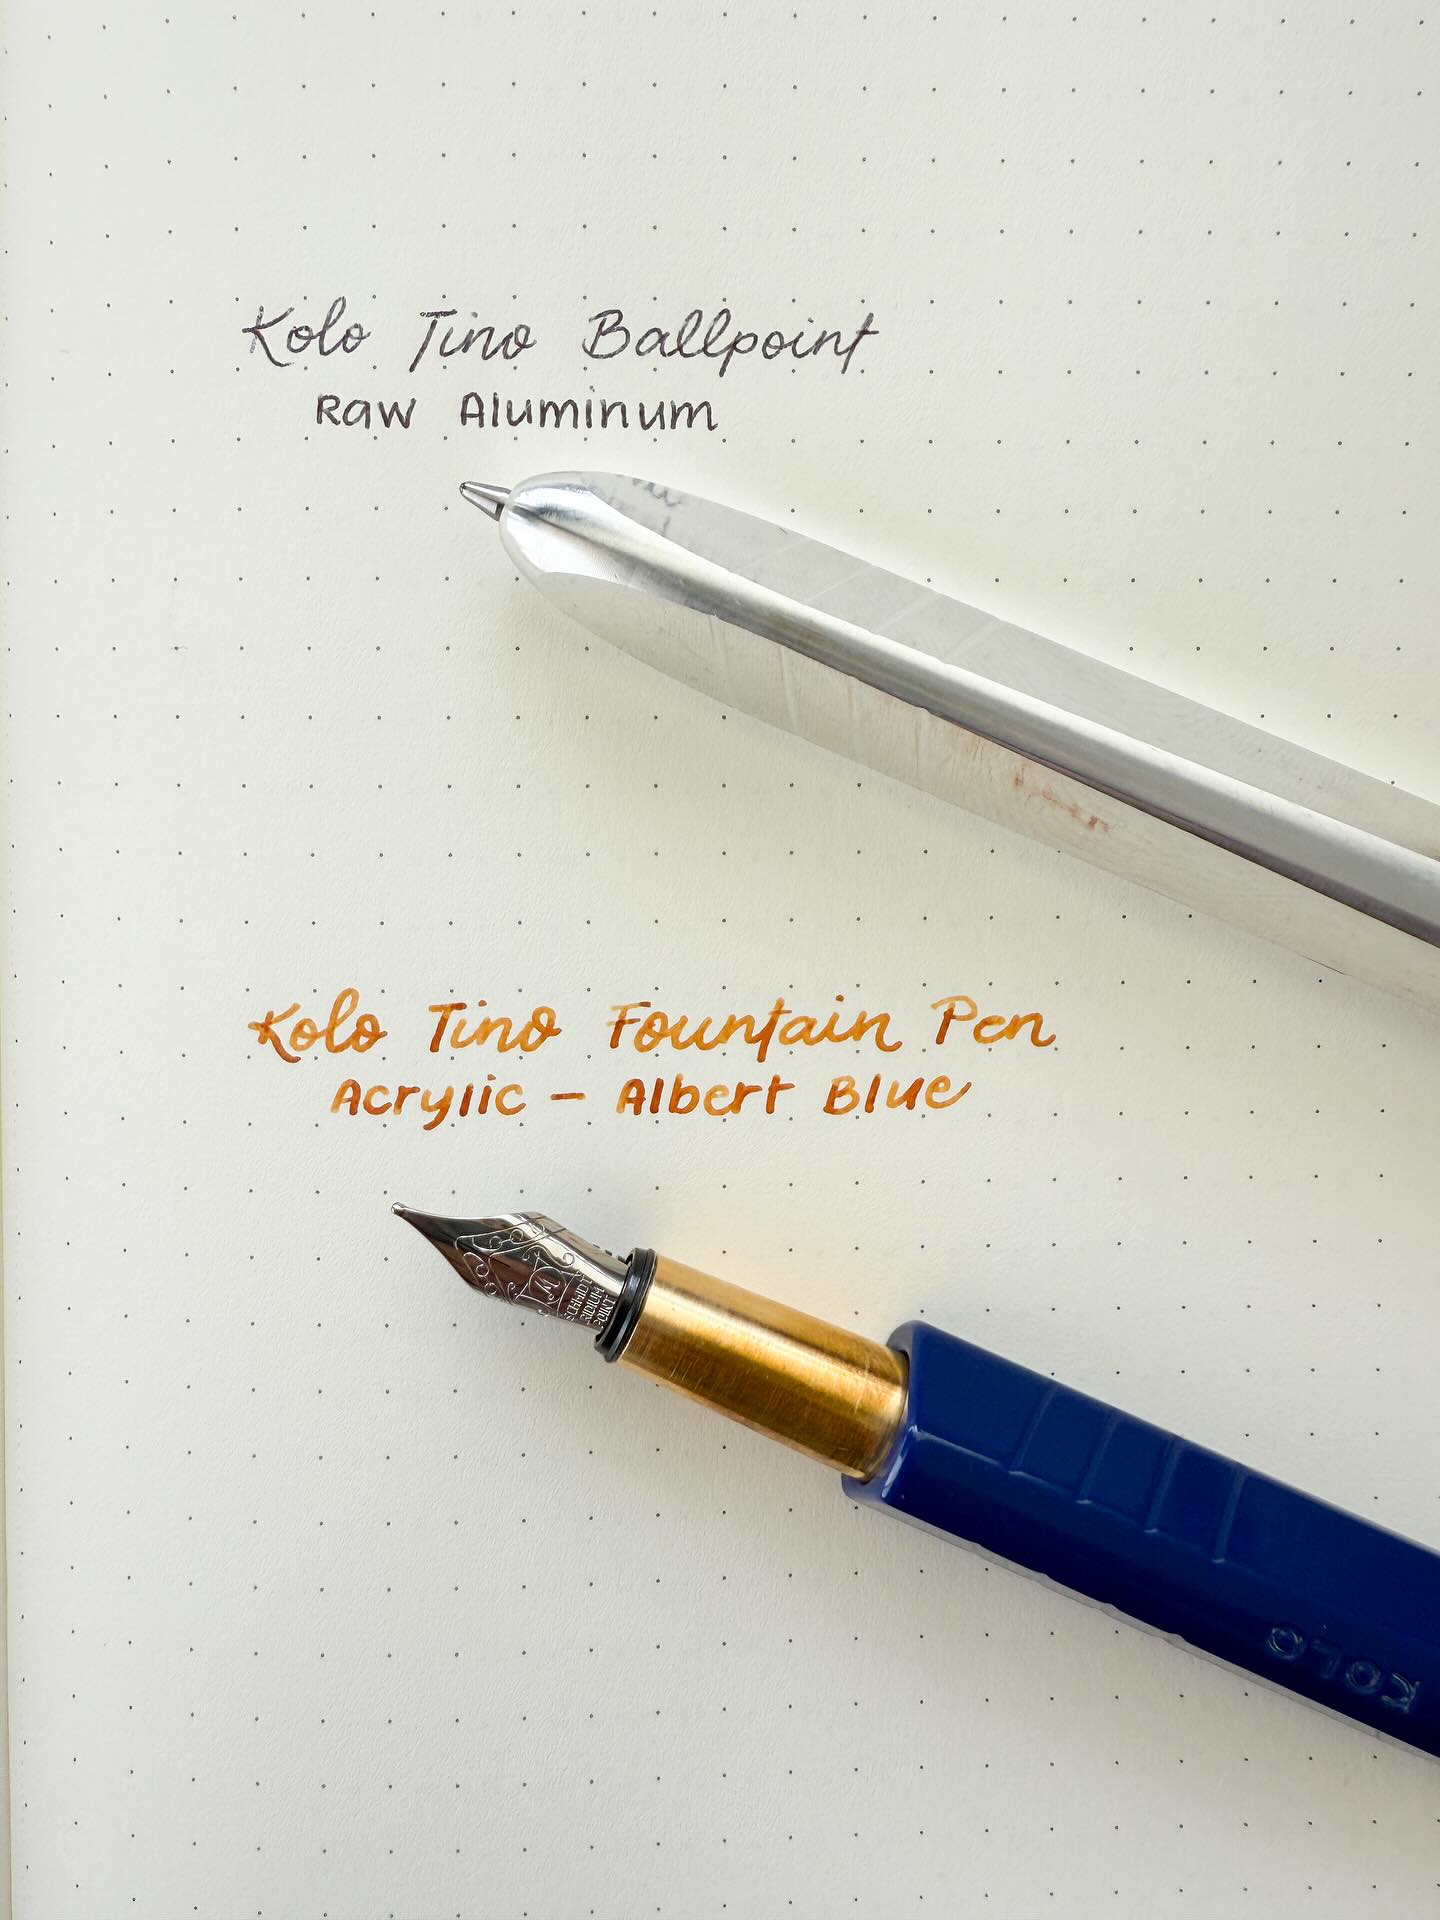 Kolo Tino Ballpoint
Raw Aluminum
Kolo Tino Fountain Pen
Acrylic – Albert Blue
SCHMIDT
IRIDIUM
POINT
KOLO